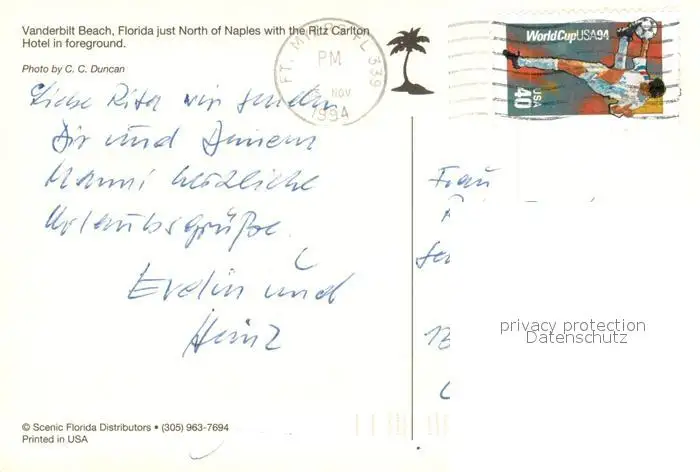 Vanderbilt Beach, Florida just North of Naples with the Ritz Carlton
Hotel in foreground.
Photo by C. C. Duncan
Liebe Rita wir senden
Dir und Deinem
Manni herzliche
Urlaubsgrüße.
Evelin und
Heinz
© Scenic Florida Distributors • (305) 963-7694
Printed in USA
FT. MYERS FL 339
PM
NOV
1994
WorldCupUSA94
USA
40
Frau
privacy protection
Datenschutz